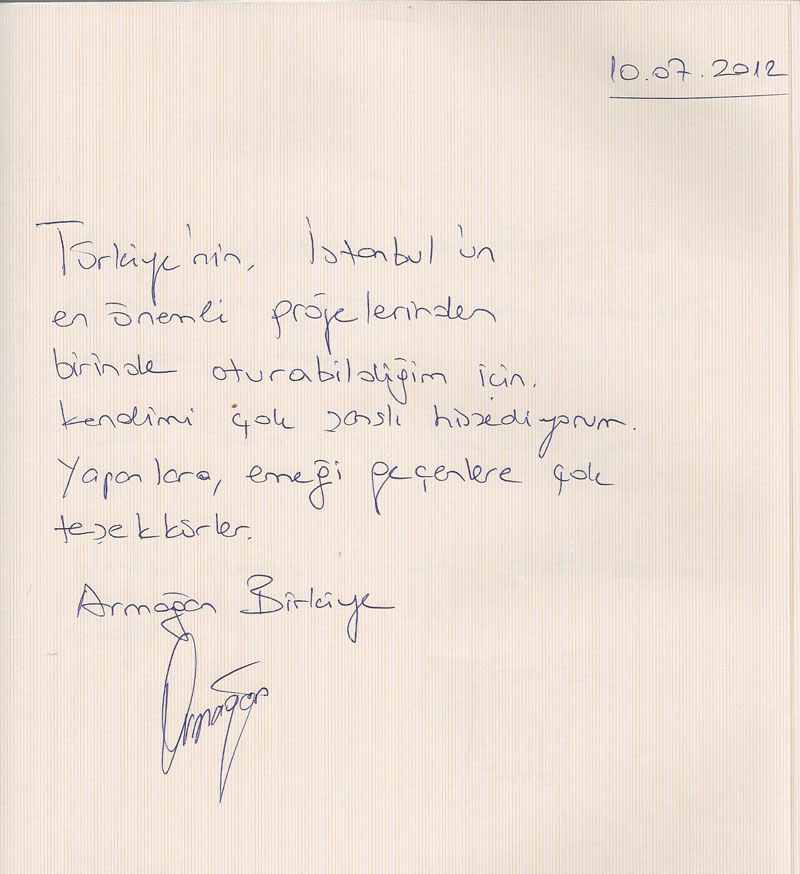 10.07.2012
Türkiye'nin, İstanbul'un
en önemli projelerinden
birinde oturabildiğim için,
kendimi çok şanslı hissediyorum.
Yapanlara, emeği geçenlere çok
teşekkürler.
Armağan Birkiye
Armağan